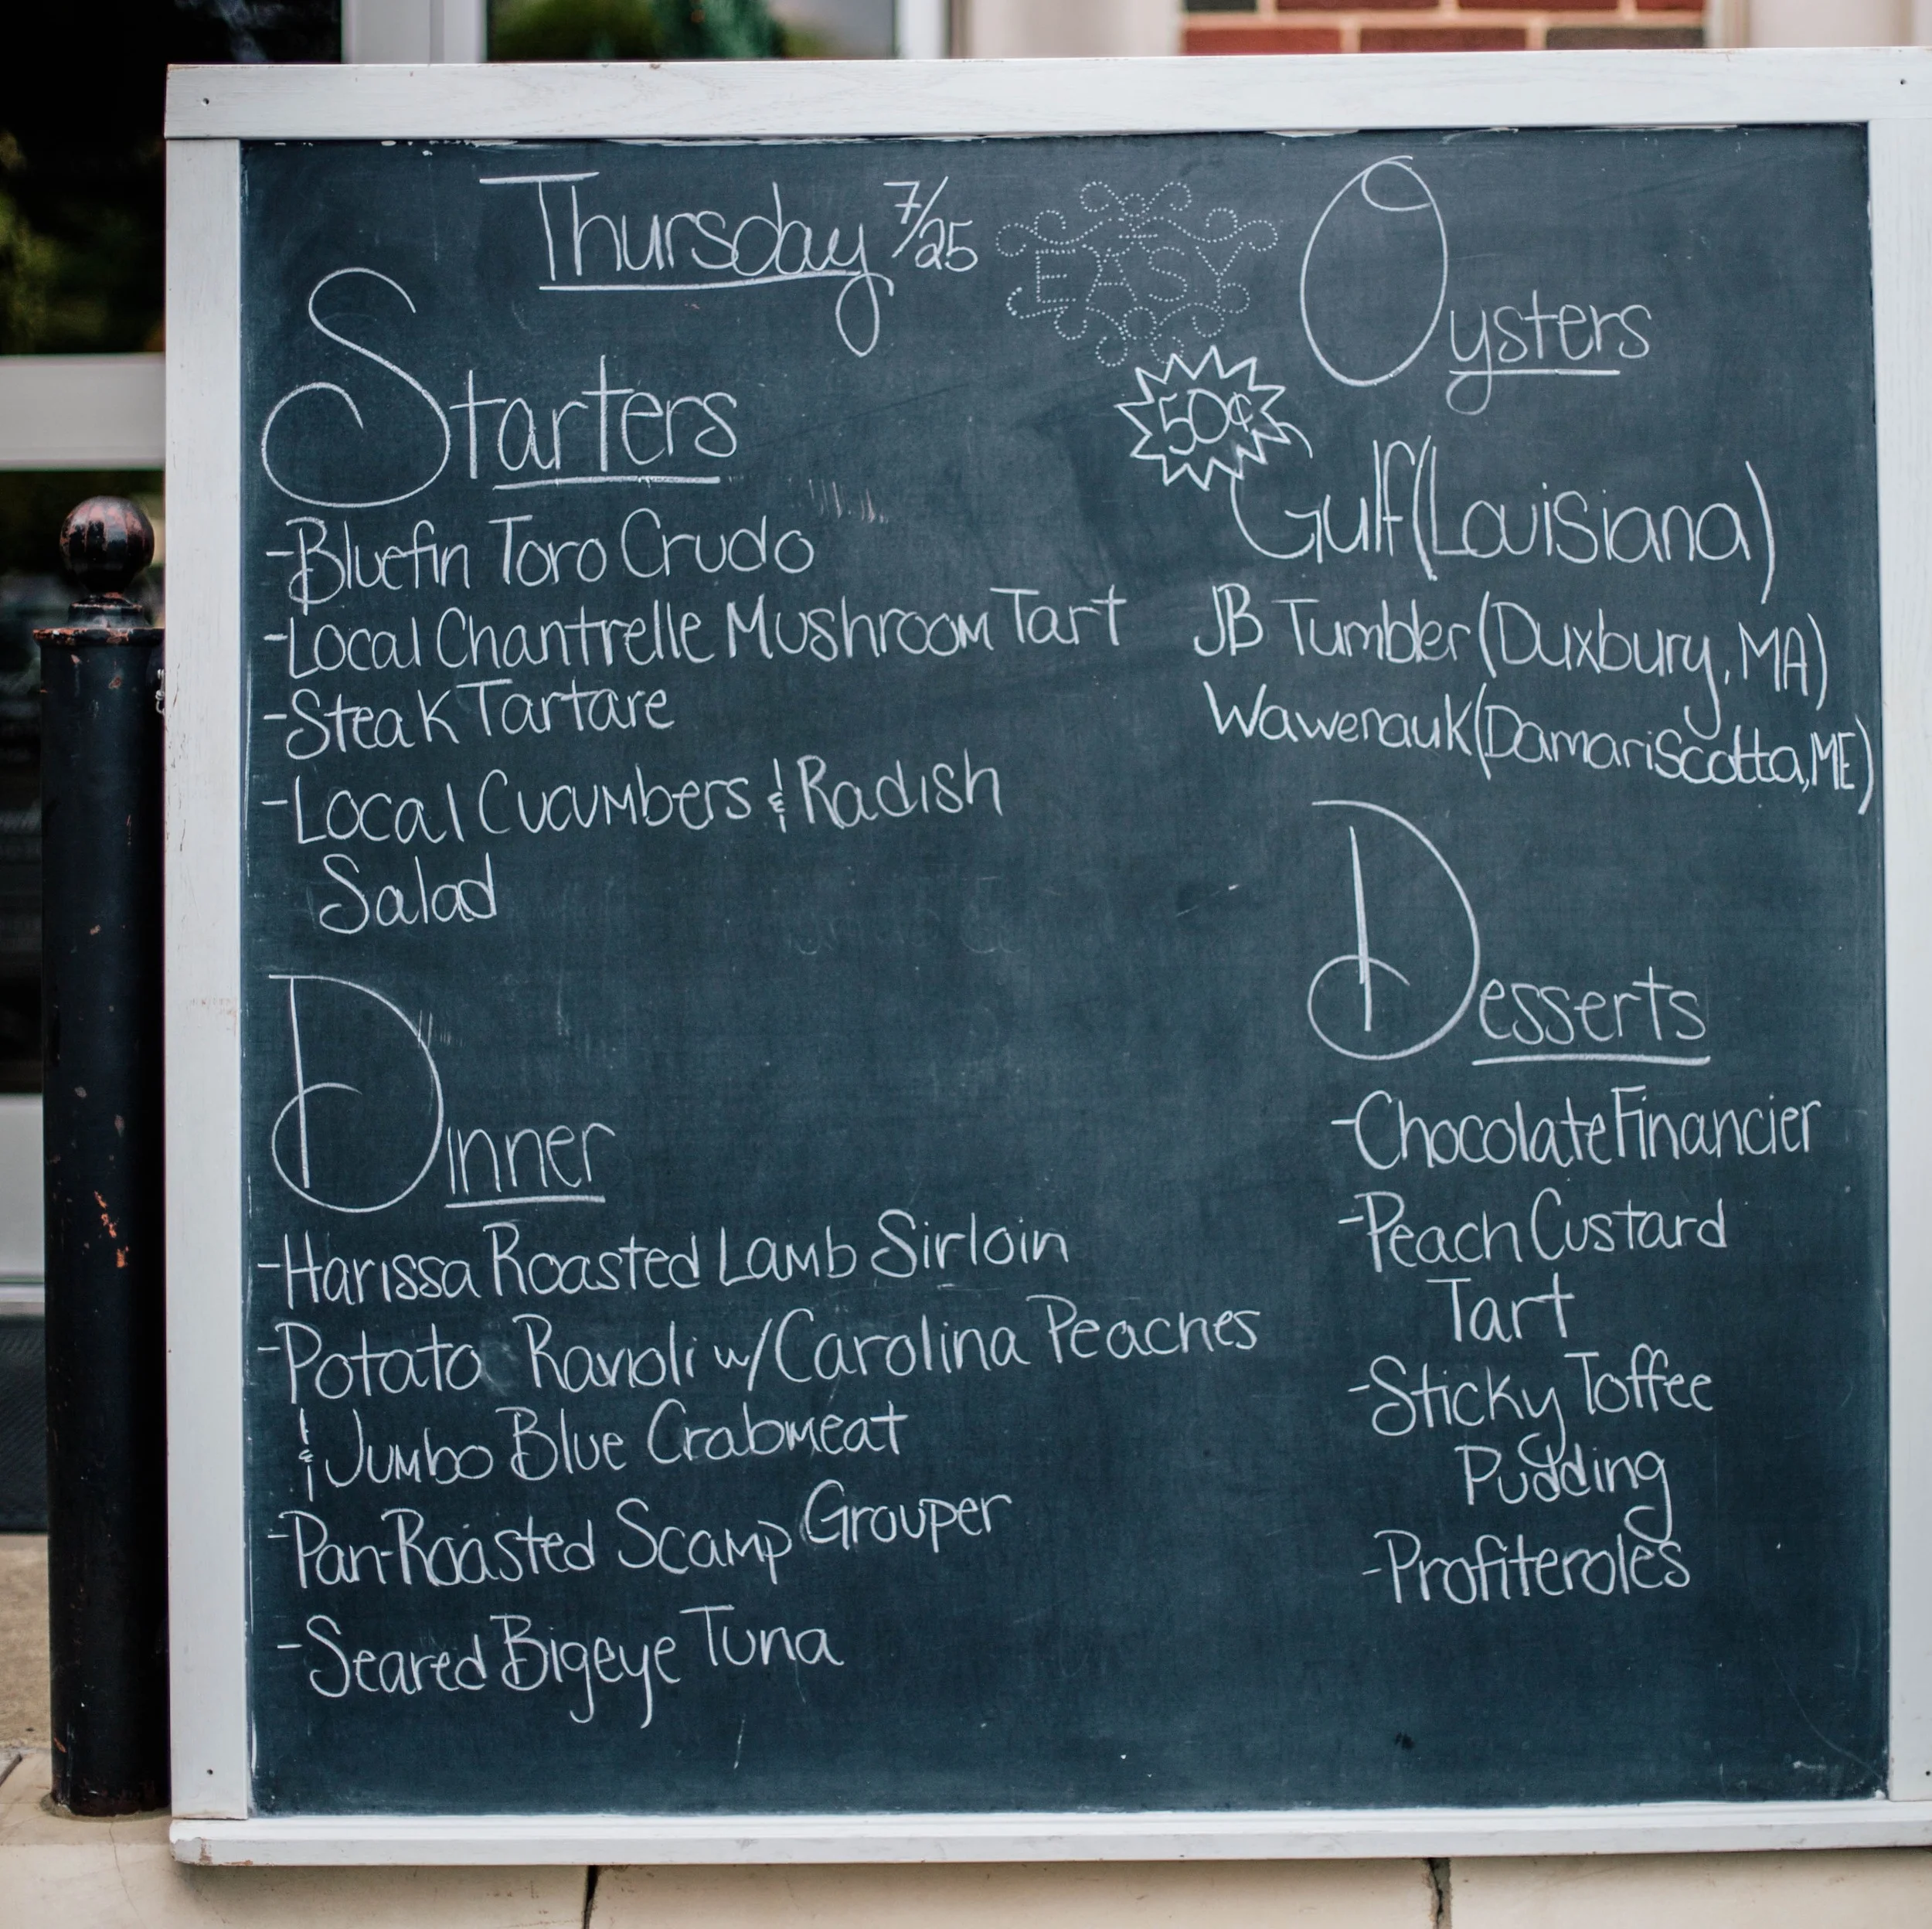 Thursday 7/25
EASY
Starters
-Bluefin Toro Crudo
-Local Chantrelle Mushroom Tart
-Steak Tartare
-Local Cucumbers & Radish
Salad
Dinner
-Harissa Roasted Lamb Sirloin
-Potato Ravioli w/Carolina Peaches
& Jumbo Blue Crabmeat
-Pan-Roasted Scamp Grouper
-Seared Bigeye Tuna
Oysters
50¢
Gulf (Louisiana)
JB Tumbler (Duxbury, MA)
Wawenauk (Damariscotta, ME)
Desserts
-Chocolate Financier
-Peach Custard
Tart
-Sticky Toffee
Pudding
-Profiteroles